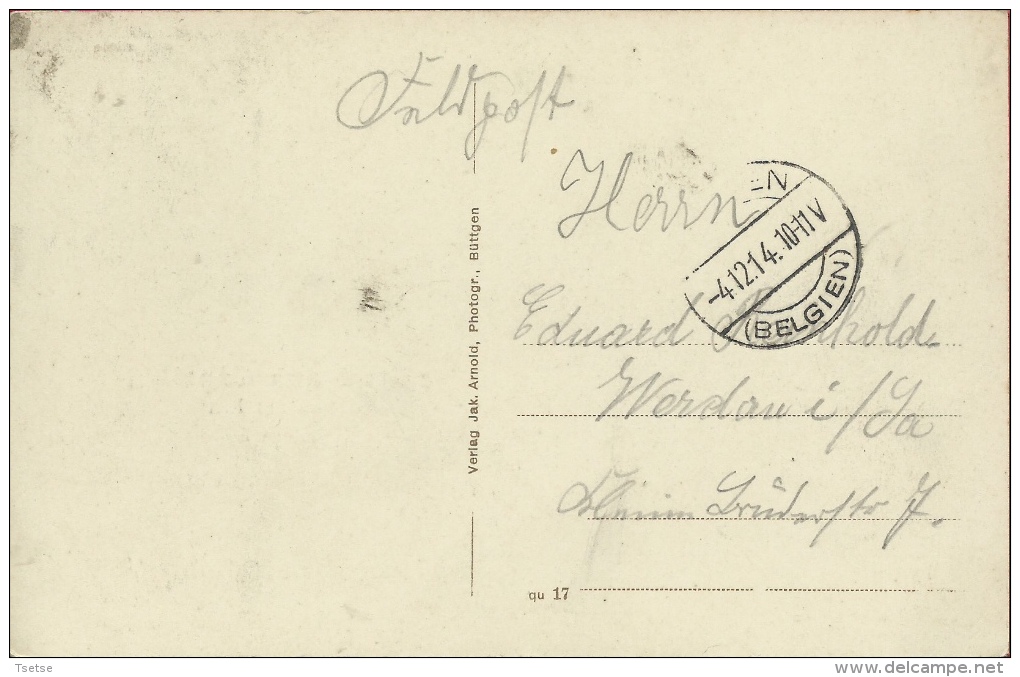 Feldpost
Herrn
EN
-4.12.14.10-11V
(BELGIEN)
Eduard
Werdau i/Sa
Brüderstr 7.
Verlag Jak. Arnold, Photogr., Büttgen
qu 17
Tsetse
www.delcampe.net